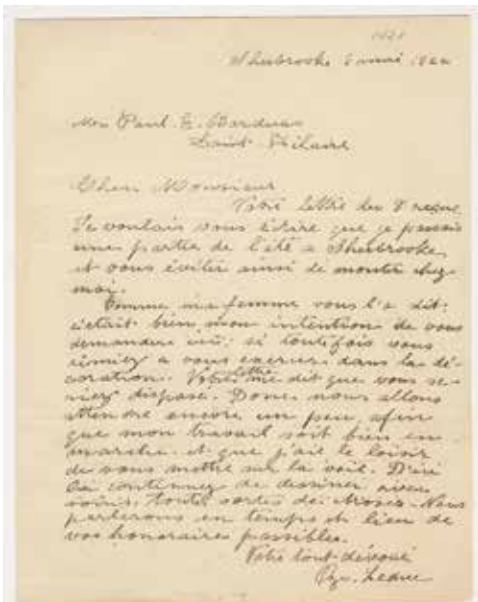 Sherbrooke
Mon Paul E. Borduas
Saint Hilaire
Cher Monsieur
Votre lettre du 8 reçue
Je voulais vous écrire que je passais
une partie de l'été a Sherbrooke,
et vous éviter ainsi de monter chez
moi.
Comme ma femme vous l'a dit.
c'était bien mon intention de vous
demander si toutefois vous
aimiez a vous exercer dans la dé-
coration. Votre lettre me dit que vous se-
riez disposé. Donc nous allons
attendre encore un peu, afin
que mon travail soit bien en
marche et que j'aie le loisir
de vous mettre sur la voie. D'ici
là continuez de dessiner avec
soins, toutes sortes de choses. Nous
parlerons en temps et lieu de
vos honoraires possibles.
Votre tout dévoué
Oz. Leduc